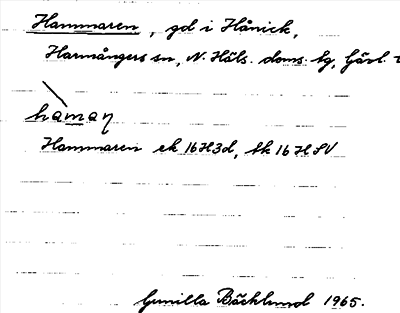 Hammaren, gd i Hånick,
Harmångers sn, N. Häls. doms. tg, Gävl.
hamaɳ
Hammaren ek 16H3d, bk 16 H SV
Gunilla Bäcklund 1965.